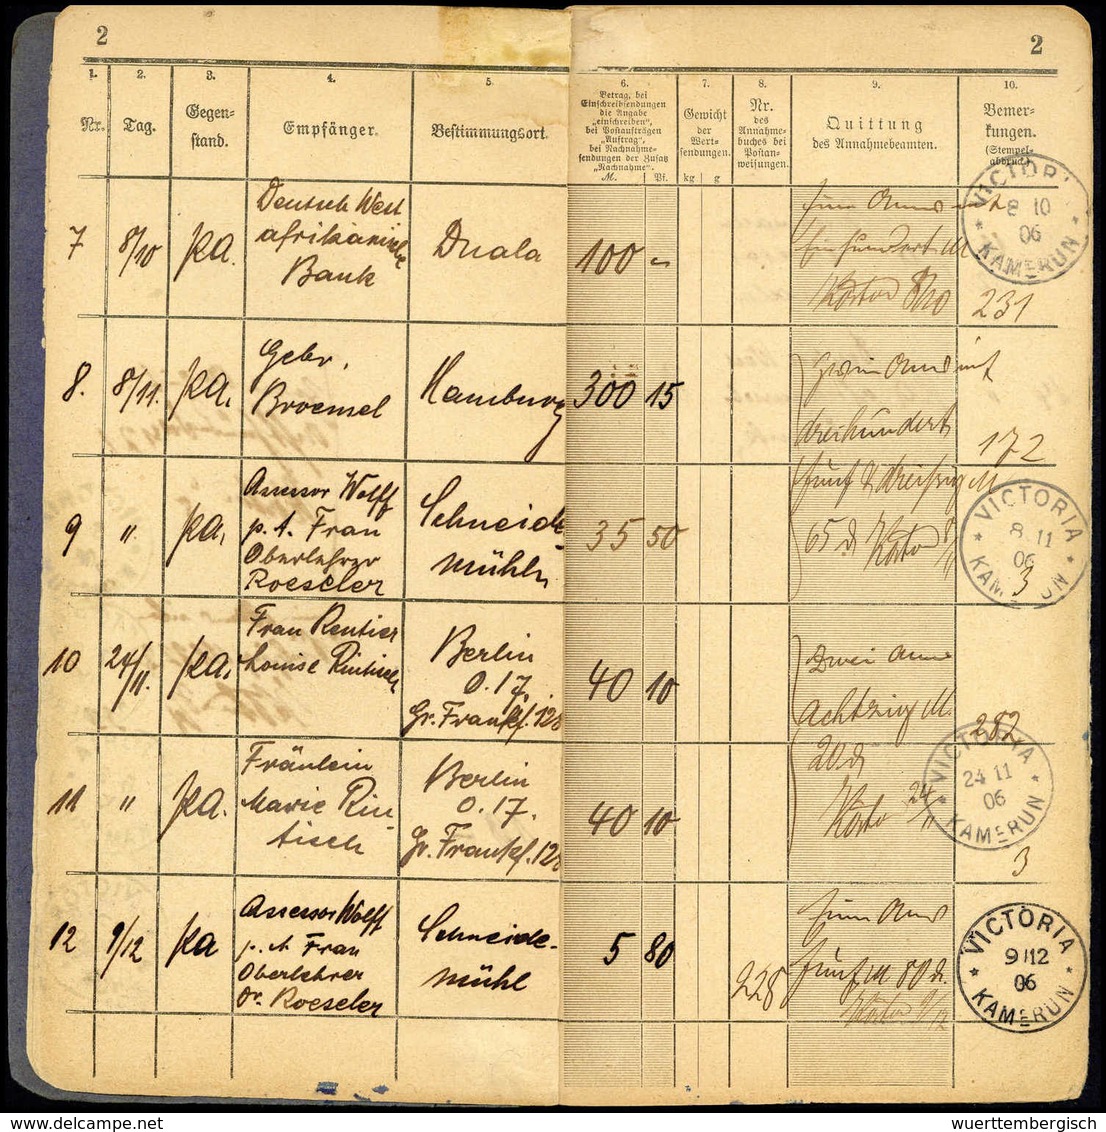 2
2
1. 2. 3. 4. 5. 6. 7. 8. 9. 10.
Nr.
Tag.
Gegen-
stand.
Empfänger.
Bestimmungsort.
Betrag, bei
Einschreibsendungen
die Angabe
„einschreiben“,
bei Postaufträgen
„Auftrag“,
bei Nachnahme-
sendungen der Zusatz
„Nachnahme“.
M. Pf.
Gewicht
der
Wert-
sendungen.
kg g
Nr.
des
Annahme-
buches bei
Postan-
weisungen.
Quittung
des Annahmebeamten.
Bemer-
kungen.
(Stempel-
abdruck.)
7 8/10 pa.
Deutsch West
afrikanische
Bank
Duala
100 –
einhundert M
8/10
231
VICTORIA
8 10
06
* KAMERUN *
8. 8/11. pa.
Gebr.
Broemel
Hamburg
300 15
dreihundert
172
9 " pa.
Assessor Wolff
p. A. Frau
Oberlehrer
Roeseler
Schneide-
mühle
35 50
fünf & dreißig M
65 d
3
VICTORIA
8.11
06
* KAMERUN *
10 24/11. pa.
Frau Rentier
Louise Rintisch
Berlin
O. 17.
Gr. Frankf. 128
40 10
Zwei
achtzig M.
282
11 " pa.
Fräulein
Marie Rin-
tisch
Berlin
O. 17.
Gr. Frankf. 128
40 10
20 d
24/11
3
VICTORIA
24 11
06
* KAMERUN *
12 9/12 pa
Assessor Wolff
p. A. Frau
Oberlehrer
Dr. Roeseler
Schneide-
mühl
5 80
228
fünf M 80 d.
9/12
VICTORIA
9 12
06
* KAMERUN *
wuerttembergisch